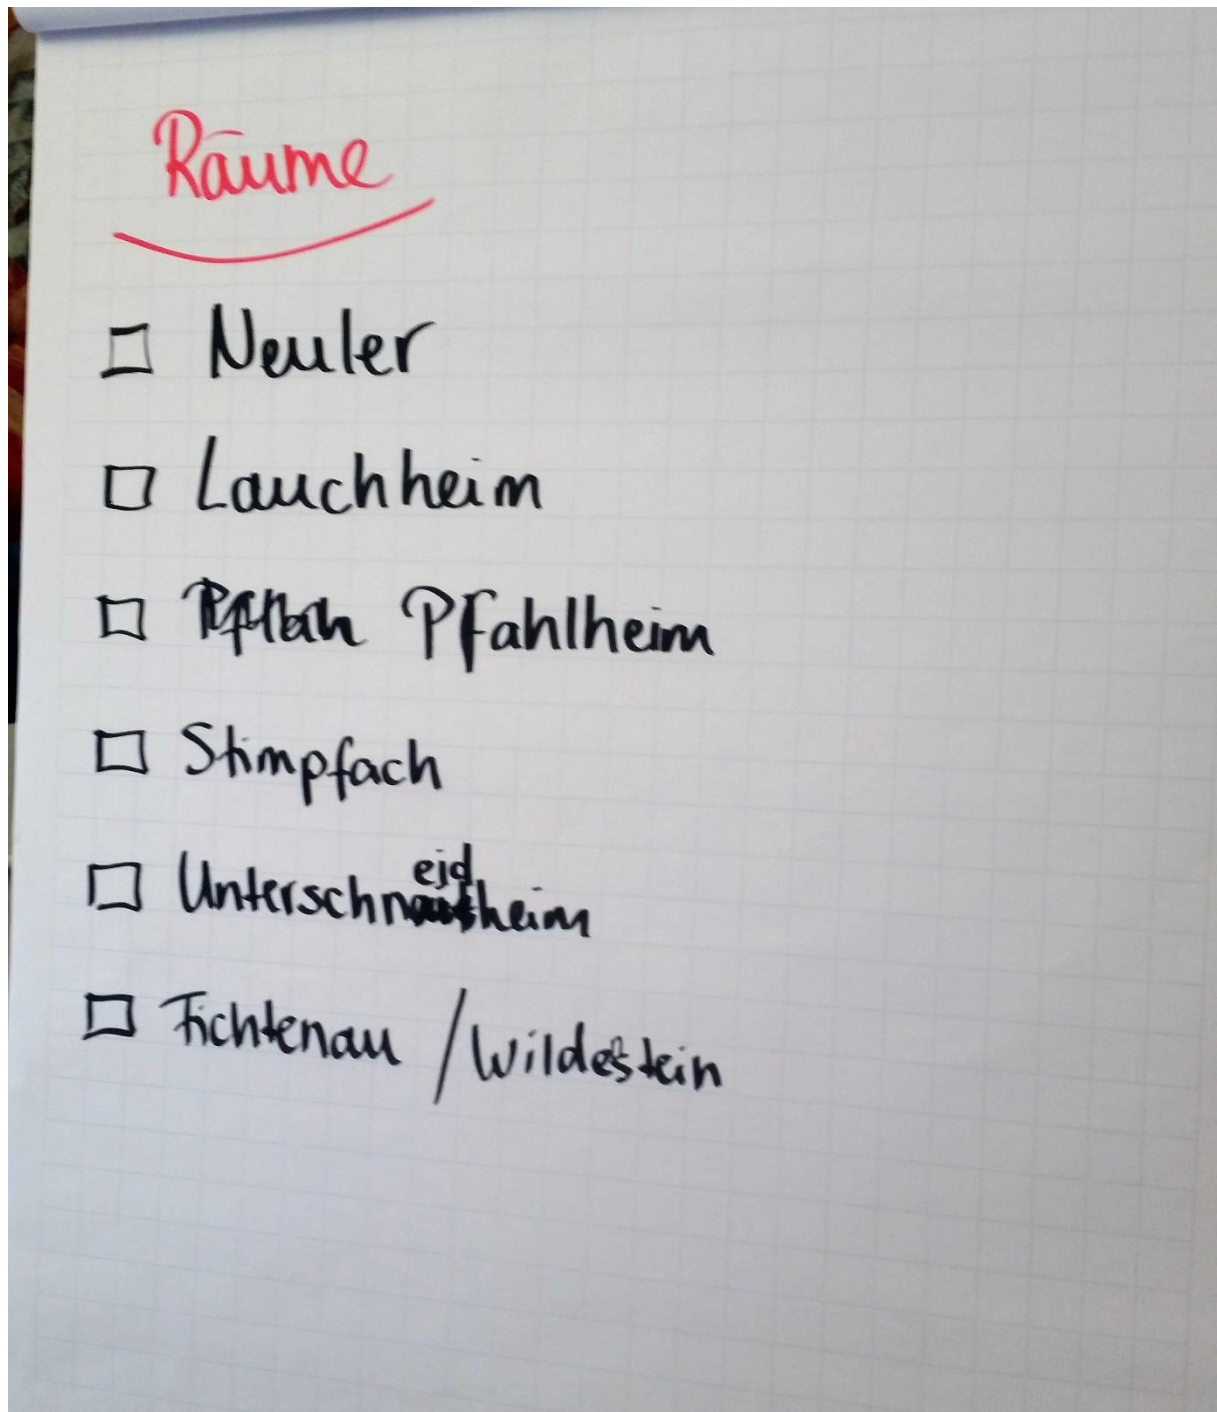 Räume
Neuler
Lauchheim
Pfahlheim
Stimpfach
Unterschneidheim
Fichtenau / Wildestein